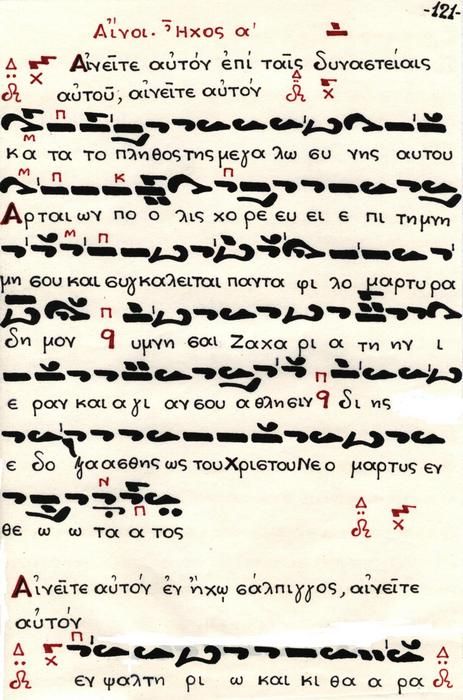 -121-
Αἶνοι. Ἦχος α'
Αἰνεῖτε αὐτόν ἐπί ταῖς δυναστείαις
αὐτοῦ, αἰνεῖτε αὐτόν
Κα τα το πληθος της μεγα λω συ νης αυτου
Αρται ων πο ο λις χο ρε ευ ει ε πι τη μνη
μη σου και συγκαλειται παντα φι λο μαρτυρα
δη μον υμνη σαι Ζαχα ρι α τη ην ι
ε ραν και α γι αν σου α θλησιν δι ης
ε δο ξασθης ως του Χριστου Νε ο μαρτυς εν
θε ω ω τα α τος
Αἰνεῖτε αὐτόν ἐν ἤχῳ σάλπιγγος, αἰνεῖτε
αὐτόν
εν ψαλτη ρι ω και κι θα α ρα